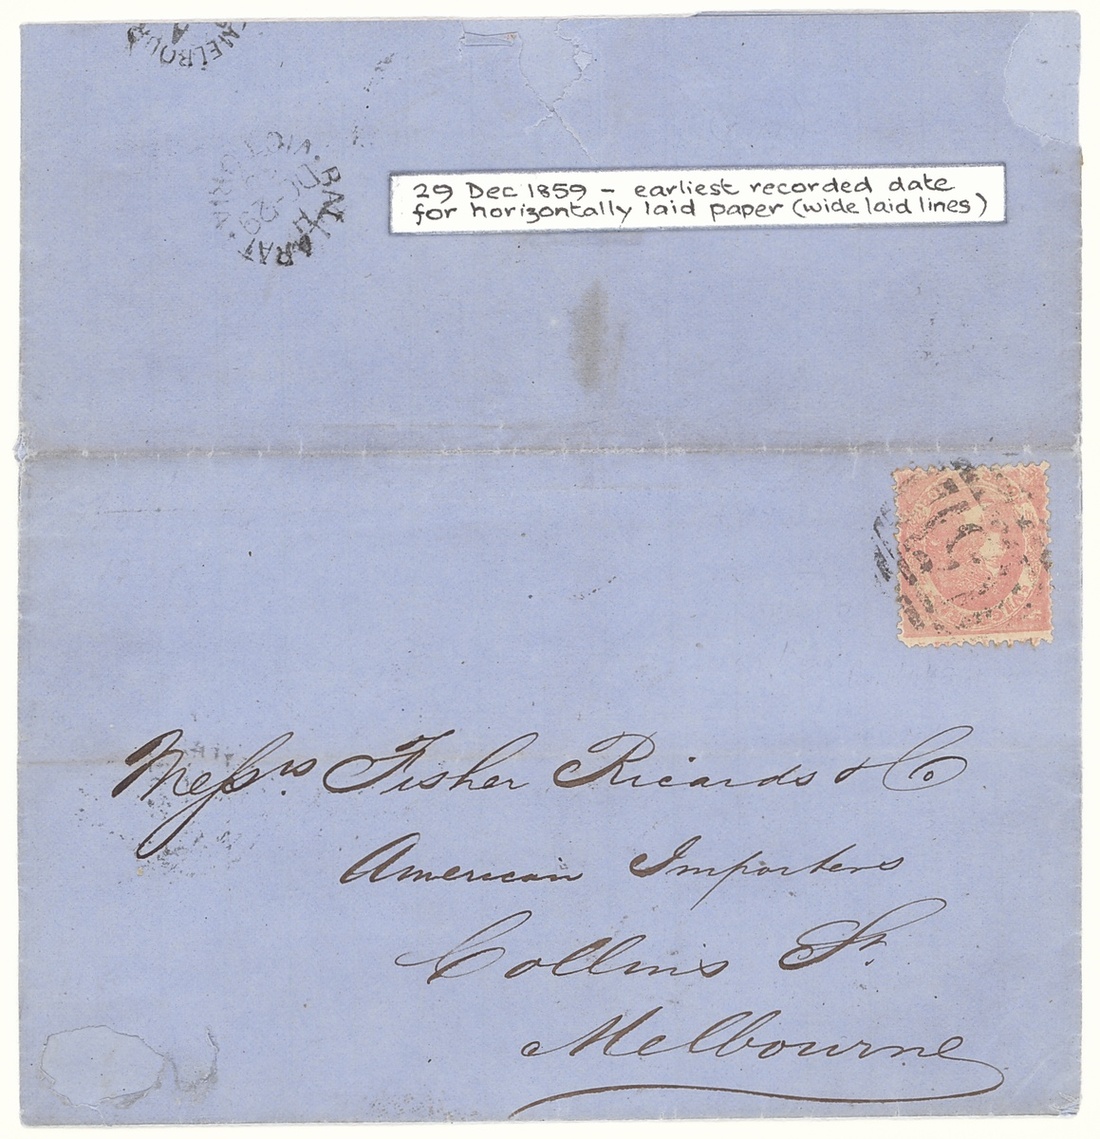 MELBOUR
A
BALLARAT
VICTORIA
DC-29
29 Dec 1859 – earliest recorded date
for horizontally laid paper (wide laid lines)
Messrs. Fisher Ricards & Co
American Importers
Collins St.
Melbourne